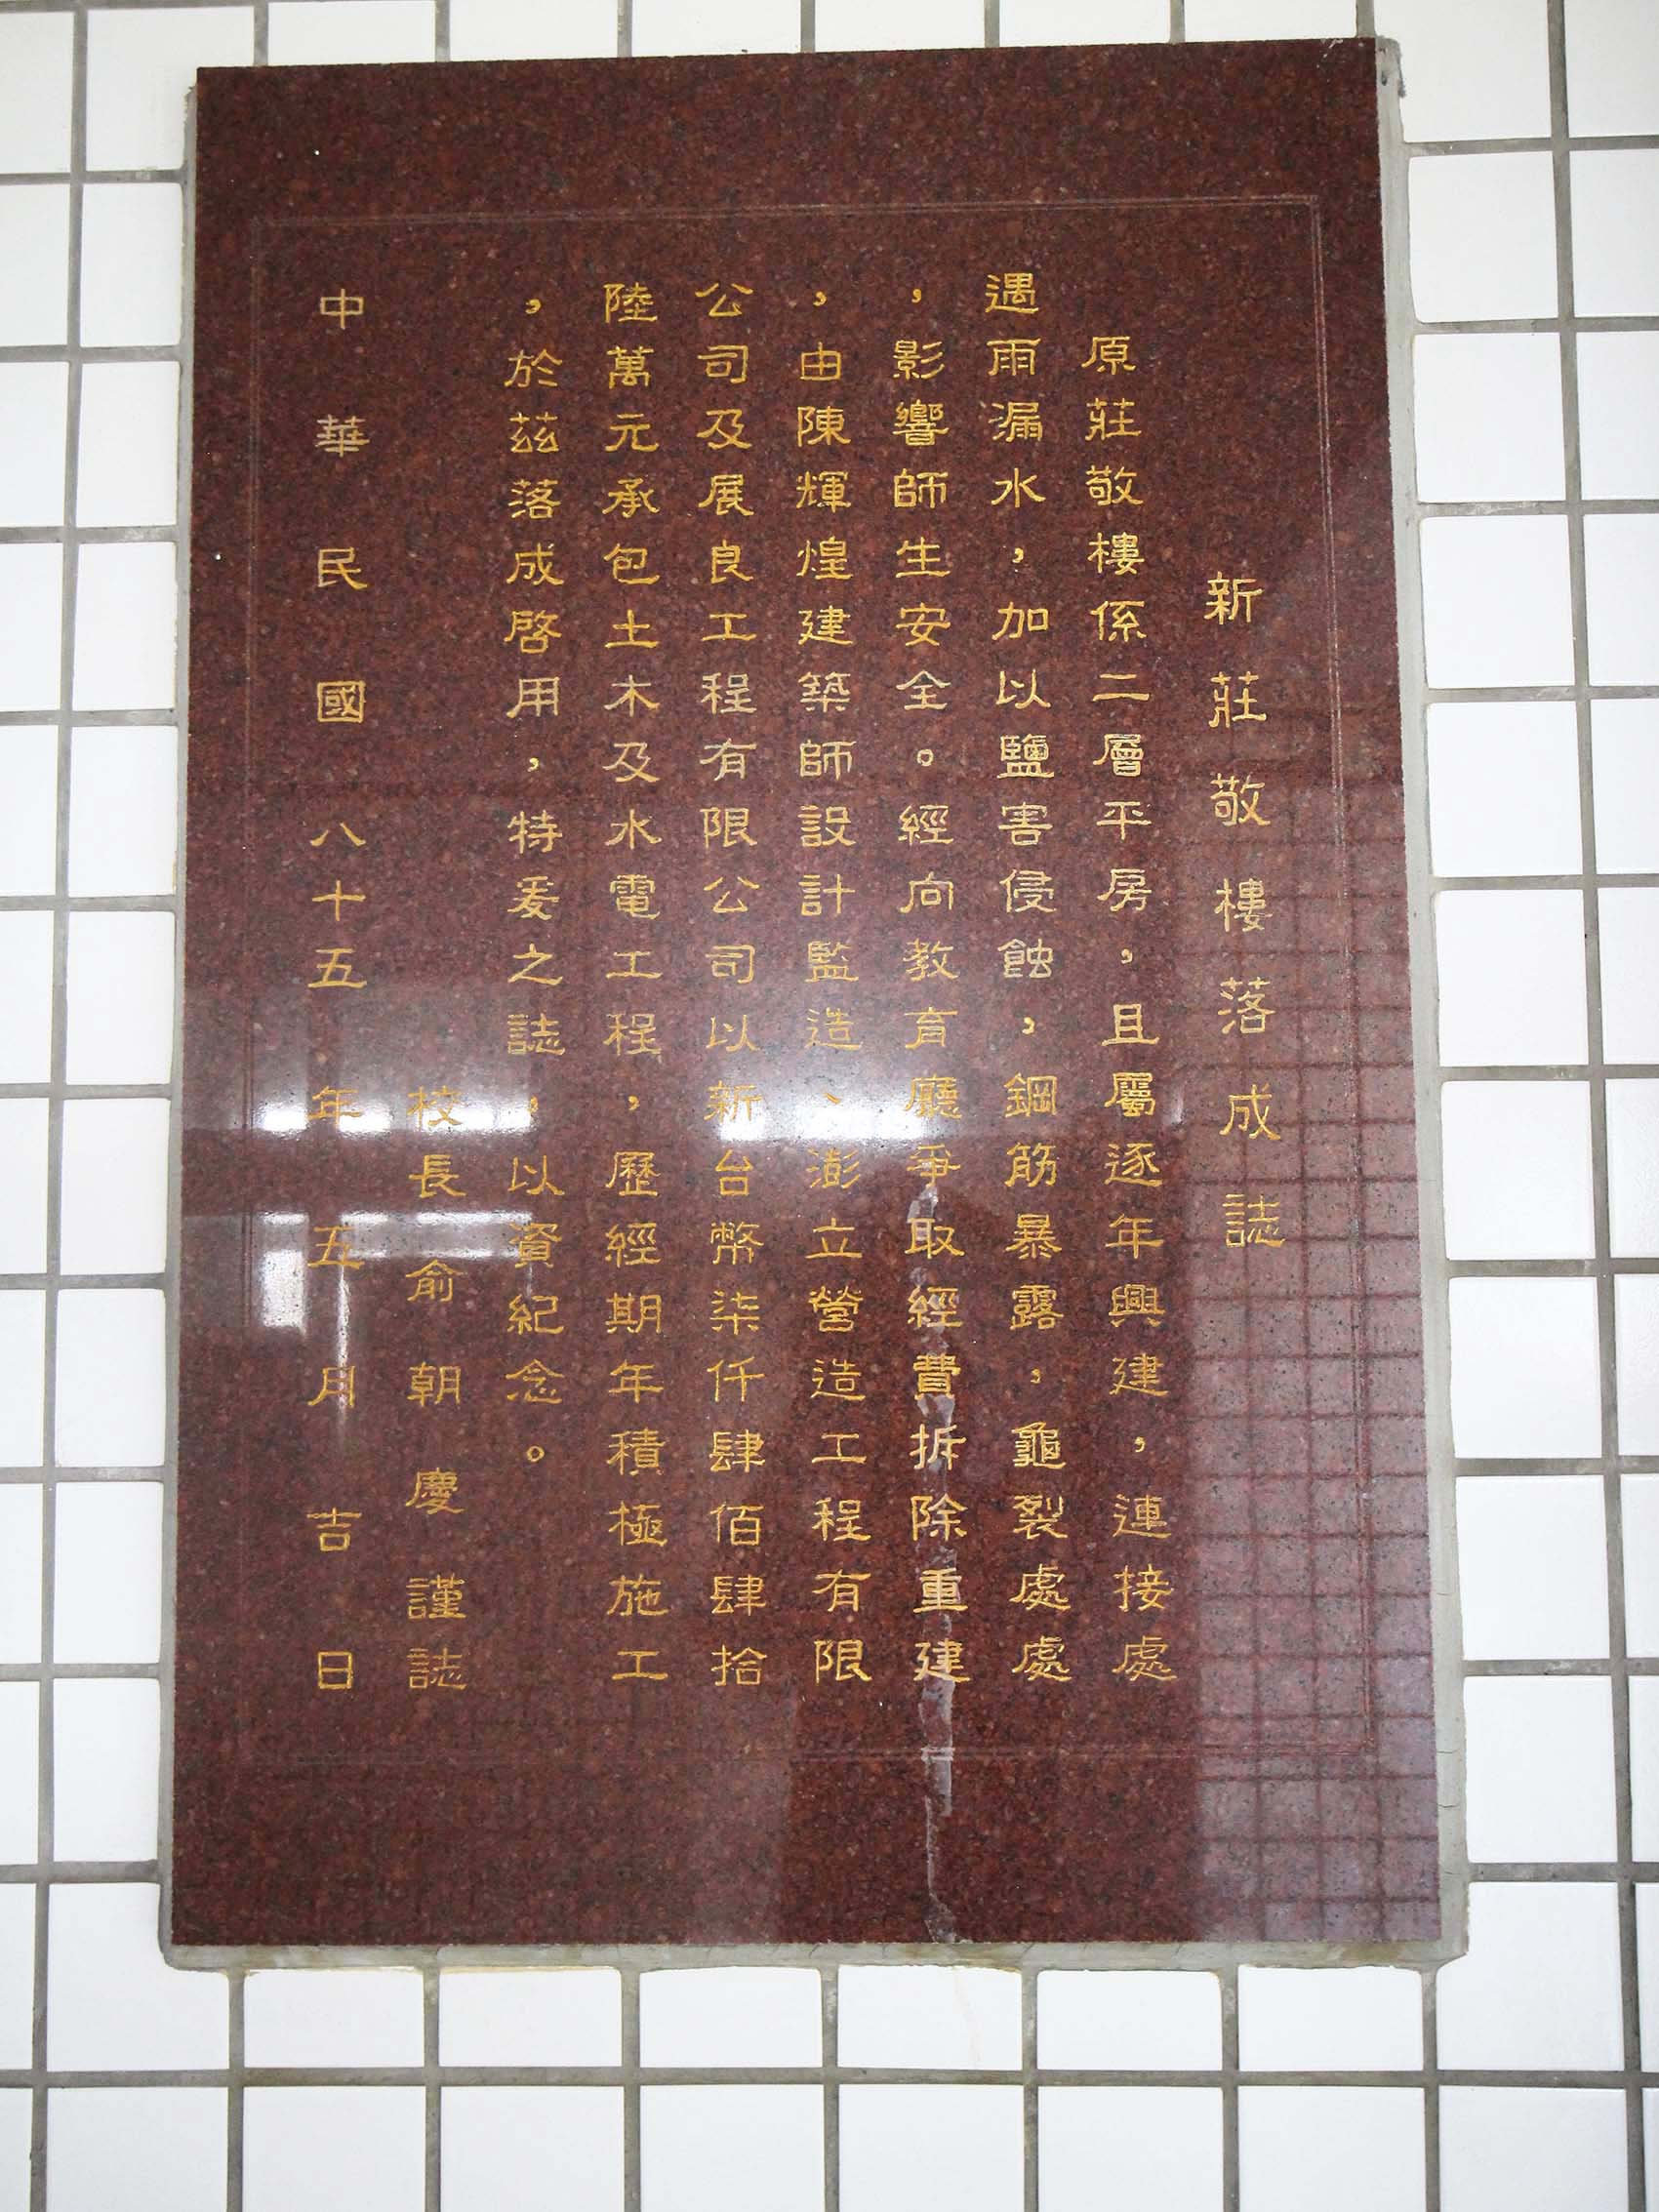 新莊敬樓落成誌
原莊敬樓係二層平房，且屬逐年興建，連接處
遇雨漏水，加以鹽害侵蝕，鋼筋暴露，龜裂處處
，影響師生安全。經向教育廳爭取經費拆除重建
，由陳輝煌建築師設計監造、澎立營造工程有限
公司及展良工程有限公司以新台幣柒仟肆佰肆拾
陸萬元承包土木及水電工程，歷經期年積極施工
，於茲落成啓用，特爰之誌，以資紀念。
校長俞朝慶謹誌
中華民國八十五年五月吉日